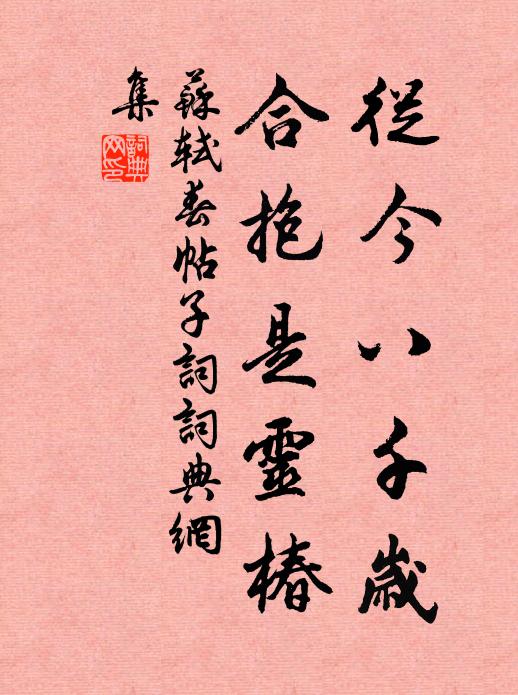 從今八千歲
合抱是靈椿
蘇軾春帖子詞詞典網
集
詞典
网印